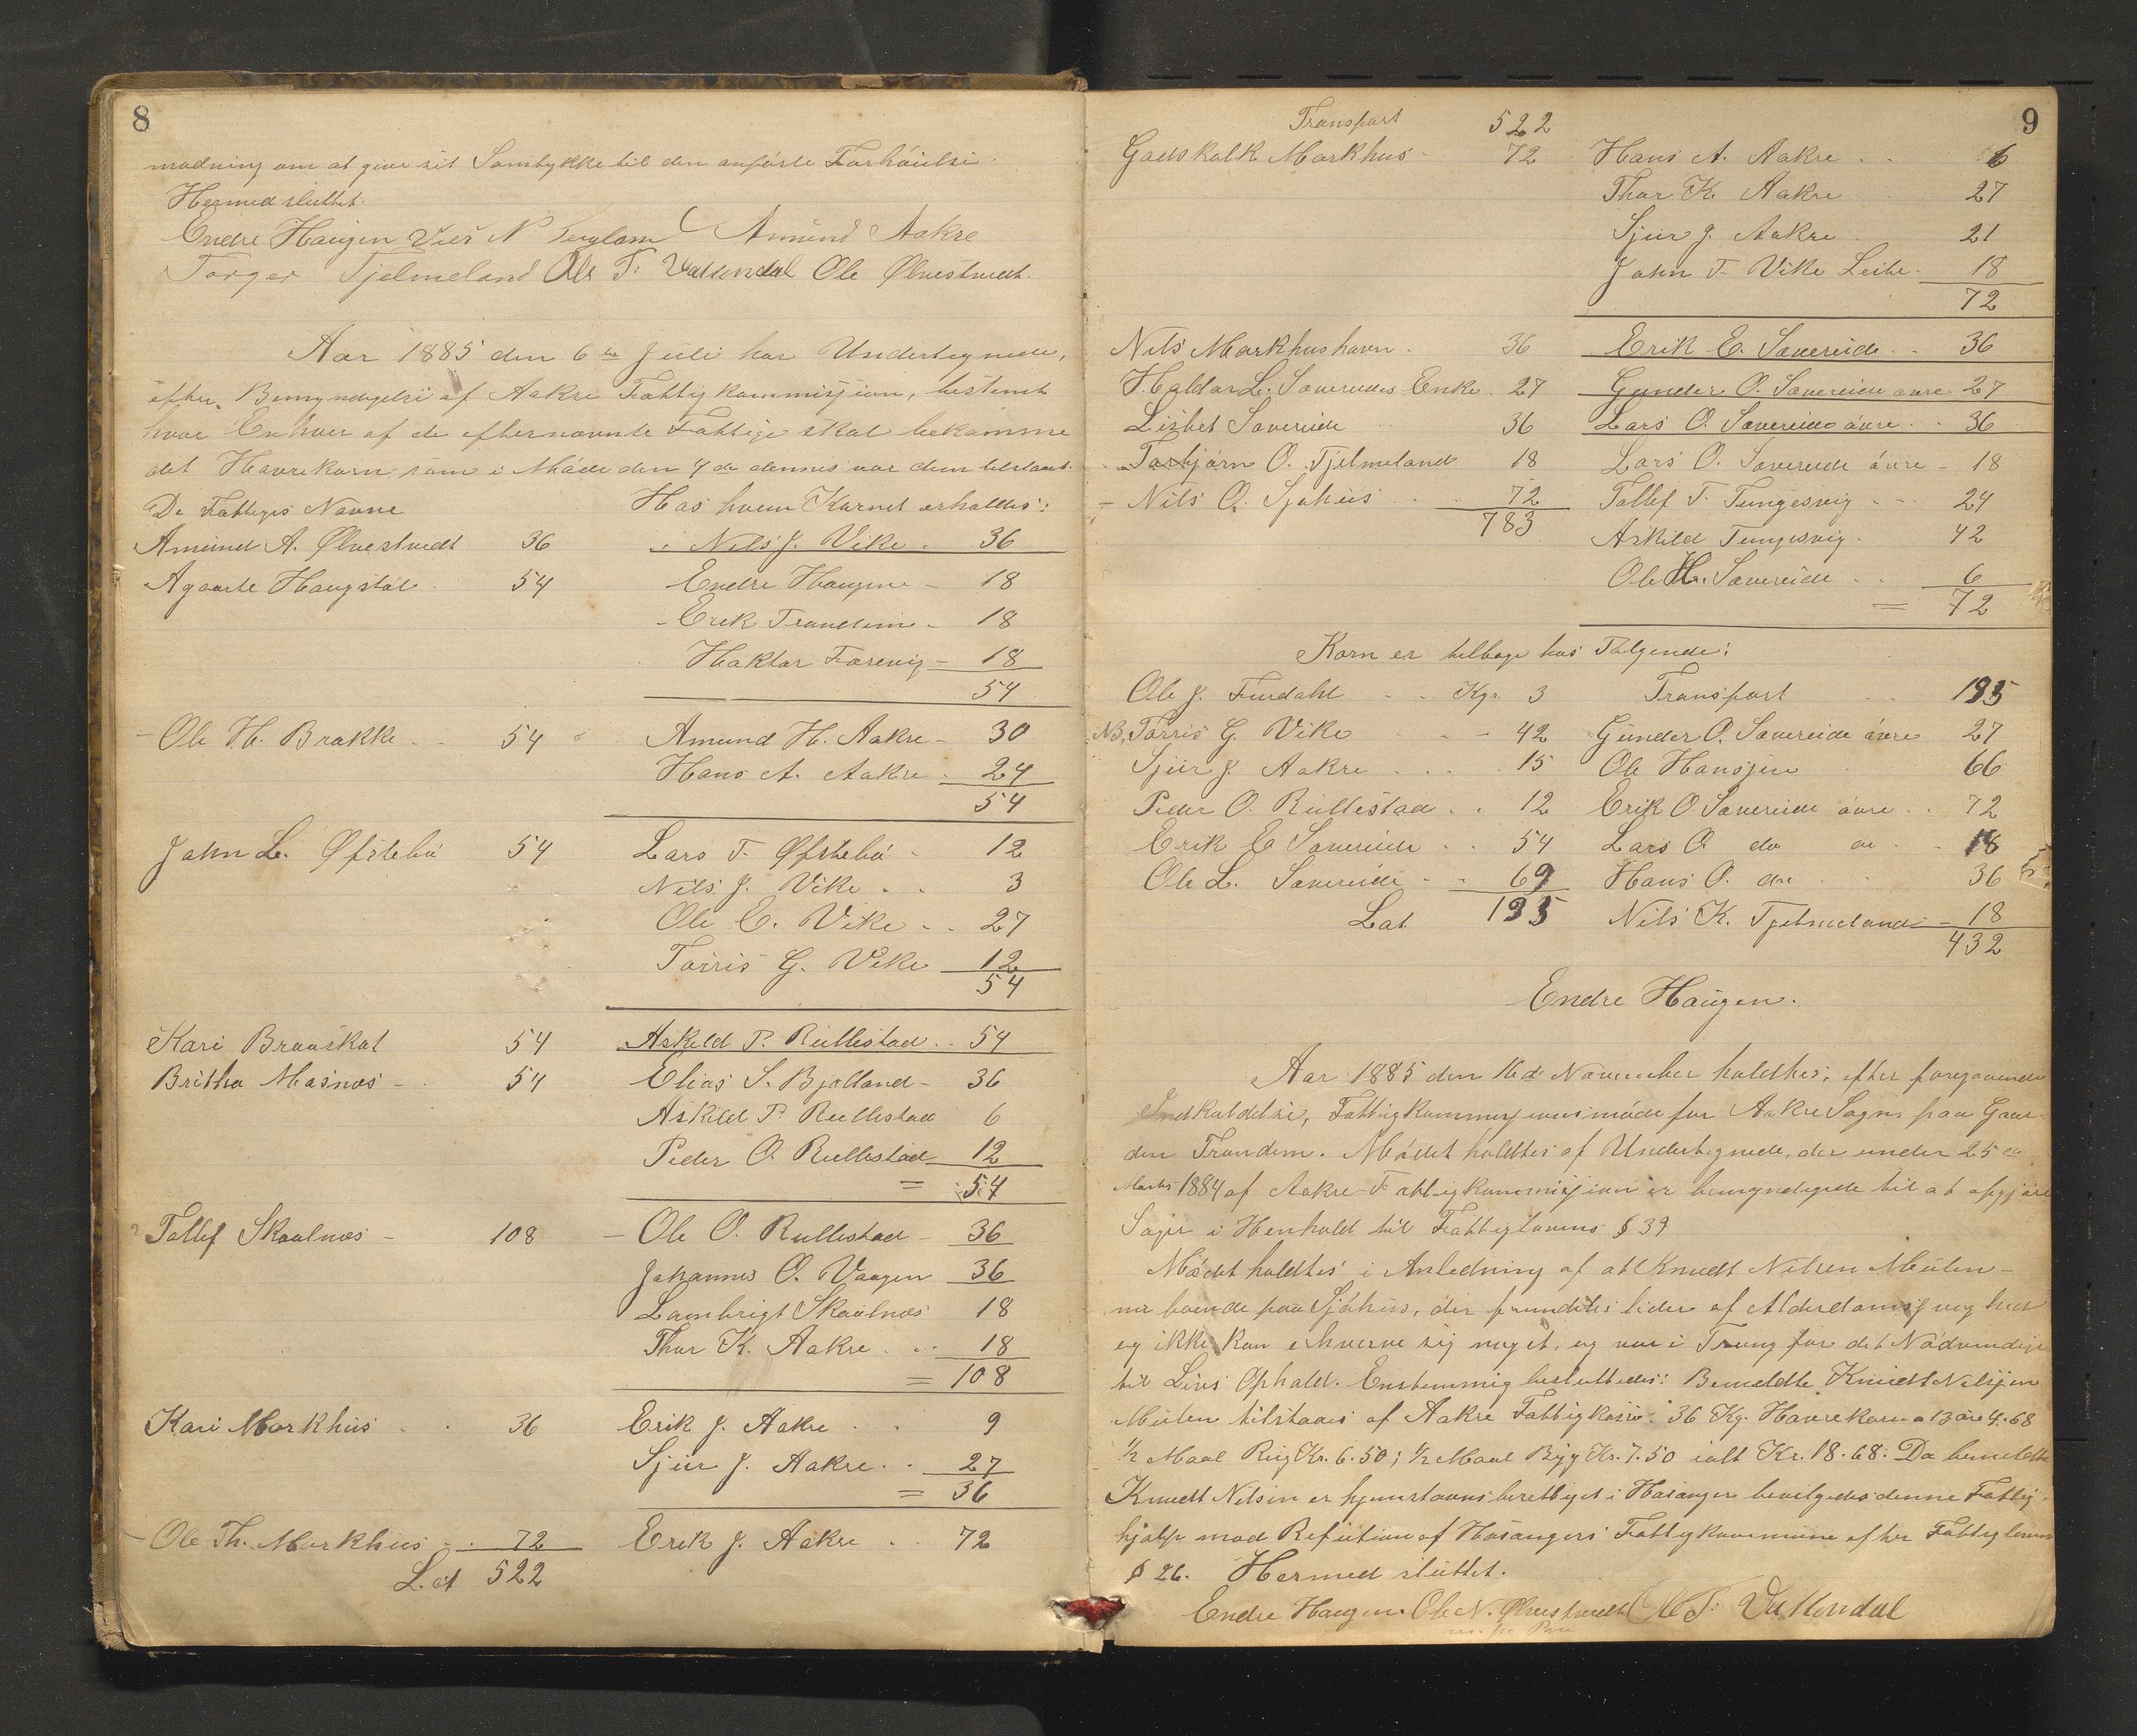 8
modning om at give sit Samtykke til den anførte Forhøielse.
Hermed sluttet.
Endre Haugen Amund Aakre
Torger Tjelmeland Ole T. Vattendal Ole Ølvestvedt.
Aar 1885 den 6te Juli har Undertegnede,
efter Bemyndigelse af Aakre Fattigkommisjion, bestemt
hvor Enhver af de efternævnte Fattige skal bekomme
det Havrekorn som i Møde den 4de dennes var dem tilstaaet.
De Fattiges Navne Hos hvem Kornet erholdes:
Amund A. Ølvestvedt 36 Nils J. Vike 36
Agaarte Haugstøl 54 Endre Haugene 18
Erik Trondem 18
Haktor Farevig 18
54
Ole H. Brakke 54 Amund H. Aakre 30
Hans A. Aakre 24
54
John L. Øfstebø 54 Lars T. Øfstebø 12
Nils J. Vike 3
Ole E. Vike 27
Torris G. Vike 12
54
Kari Braaskat 54 Askild P. Rullestad 54
Britha Masnæs 54 Elias S. Bjolland 36
Askild P. Rullestad 6
Peder O. Rullestad 12
= 54
Tollef Skaalnæs 108 Ole O. Rullestad 36
Johannes O. Vaagen 36
Lambrigt Skaalnæs 18
Thor K. Aakre 18
= 108
Kari Markhus 36 Erik J. Aakre 9
Sjur J. Aakre 27
= 36
Ole Th. Markhus 72 Erik J. Aakre 72
Lat 522
9
Transport 522
Gadskalk Markhus 72 Hans A. Aakre 6
Thor K. Aakre 27
Sjur J. Aakre 21
John T. Vike Leite 18
72
Nils Markhushavn 36 Erik E. Sævereide 36
Haldor L. Sævereides Enke 27 Gunder O. Sævereide øvre 27
Lisbet Sævereide 36 Lars O. Sævereide øvre 36
Torbjørn O. Tjelmeland 18 Lars O. Sævereide øvre 18
Nils O. Sjohus 72 Tollef T. Tungesvig 24
783 Askild Tungesvig 42
Ole H. Sævereide 6
= 72
Korn er tilbage hos Følgende:
Ole J. Fjurdahl Kgr. 3 Transport 195
NB. Torris G. Vike 42 Gunder O. Sævereide øvre 27
Sjur J. Aakre 15 Ole Hansjen 66
Peder O. Rullestad 12 Erik O Sævereide øvre 72
Erik E Sævereide 54 Lars O do do 18
Ole L. Sævereide 69 Hans O. do 36
Lat 195 Nils K. Tjelmeland 18
432
Endre Haugen.
Aar 1885 den 16de November holdtes, efter foregaaende
Indkaldelse, Fattigkommisjionsmøde for Aakre Sogn paa Gaar-
den Trondem. Mødet holdtes af Undertegnede, der under 25de
Marts 1884 af Aakre Fattigkommisjion er bemyndigede til at afgjøre
Sager i Henhold til Fattiglovens § 39
Mødet holdtes i Anledning af at Knudt Nilsen Mulen
nu boende paa Sjøhus, der fremdeles lider af Alderdomssvaghed
og ikke kan erhverve sig noget, og var i Trang for det Nødvendige
til Livs Ophold. Enstemmig besluttedes: Bemeldte Knudt Nilsjen
Mulen tilstaaes af Aakre Fattigkasse 36 Kg. Havrekorn a 13 øre 4.68
1/2 Maal Rug Kr. 6.50; 1/2 Maal Byg Kr. 7.50 ialt Kr. 18.68. Da bemeldte
Knudt Nilsen er hjemstavnsberettiget i Hosanger bevilgedes denne Fattig-
hjælp mod Refution af Hosangers Fattigkommune efter Fattigloven
§ 26. Hermed sluttet.
Endre Haugen. Ole N. Ølvestvedt Ole T. Vattendal